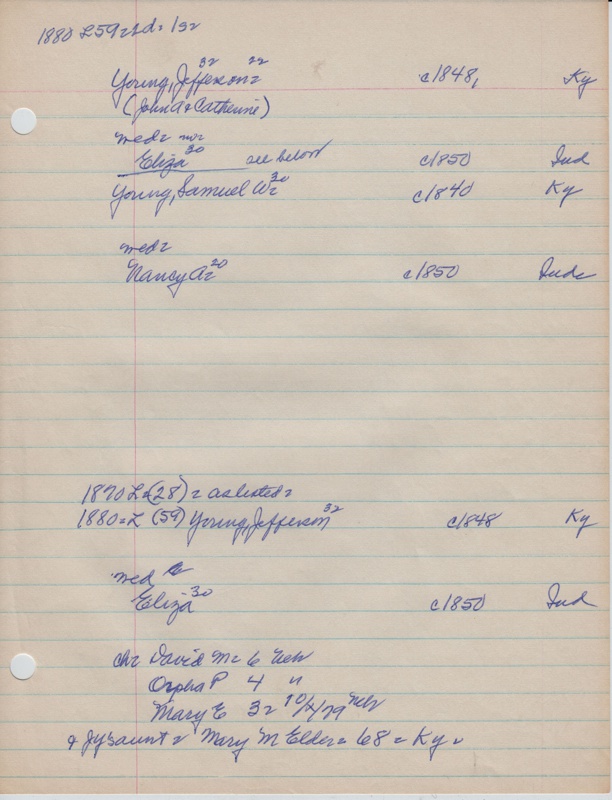 1880 L59=Ld= 132
Young, Jefferson= 32 22 c1848, Ky
(John A & Catherine)
med= nov
Eliza 30 see below c1850 Ind
Young, Samuel W= 30 c1840 Ky
med=
Nancy A= 20 c1850 Ind=
1870 L=(28)= as listed=
1880=L (59) Young, Jefferson 32 c1848 Ky
med
Eliza -30 c1850 Ind
ch= David M= 6 Neb
Orpha P 4 "
Mary E 3= 10/4/79 Neb
& Jy's aunt= Mary M Elder= 68= Ky=